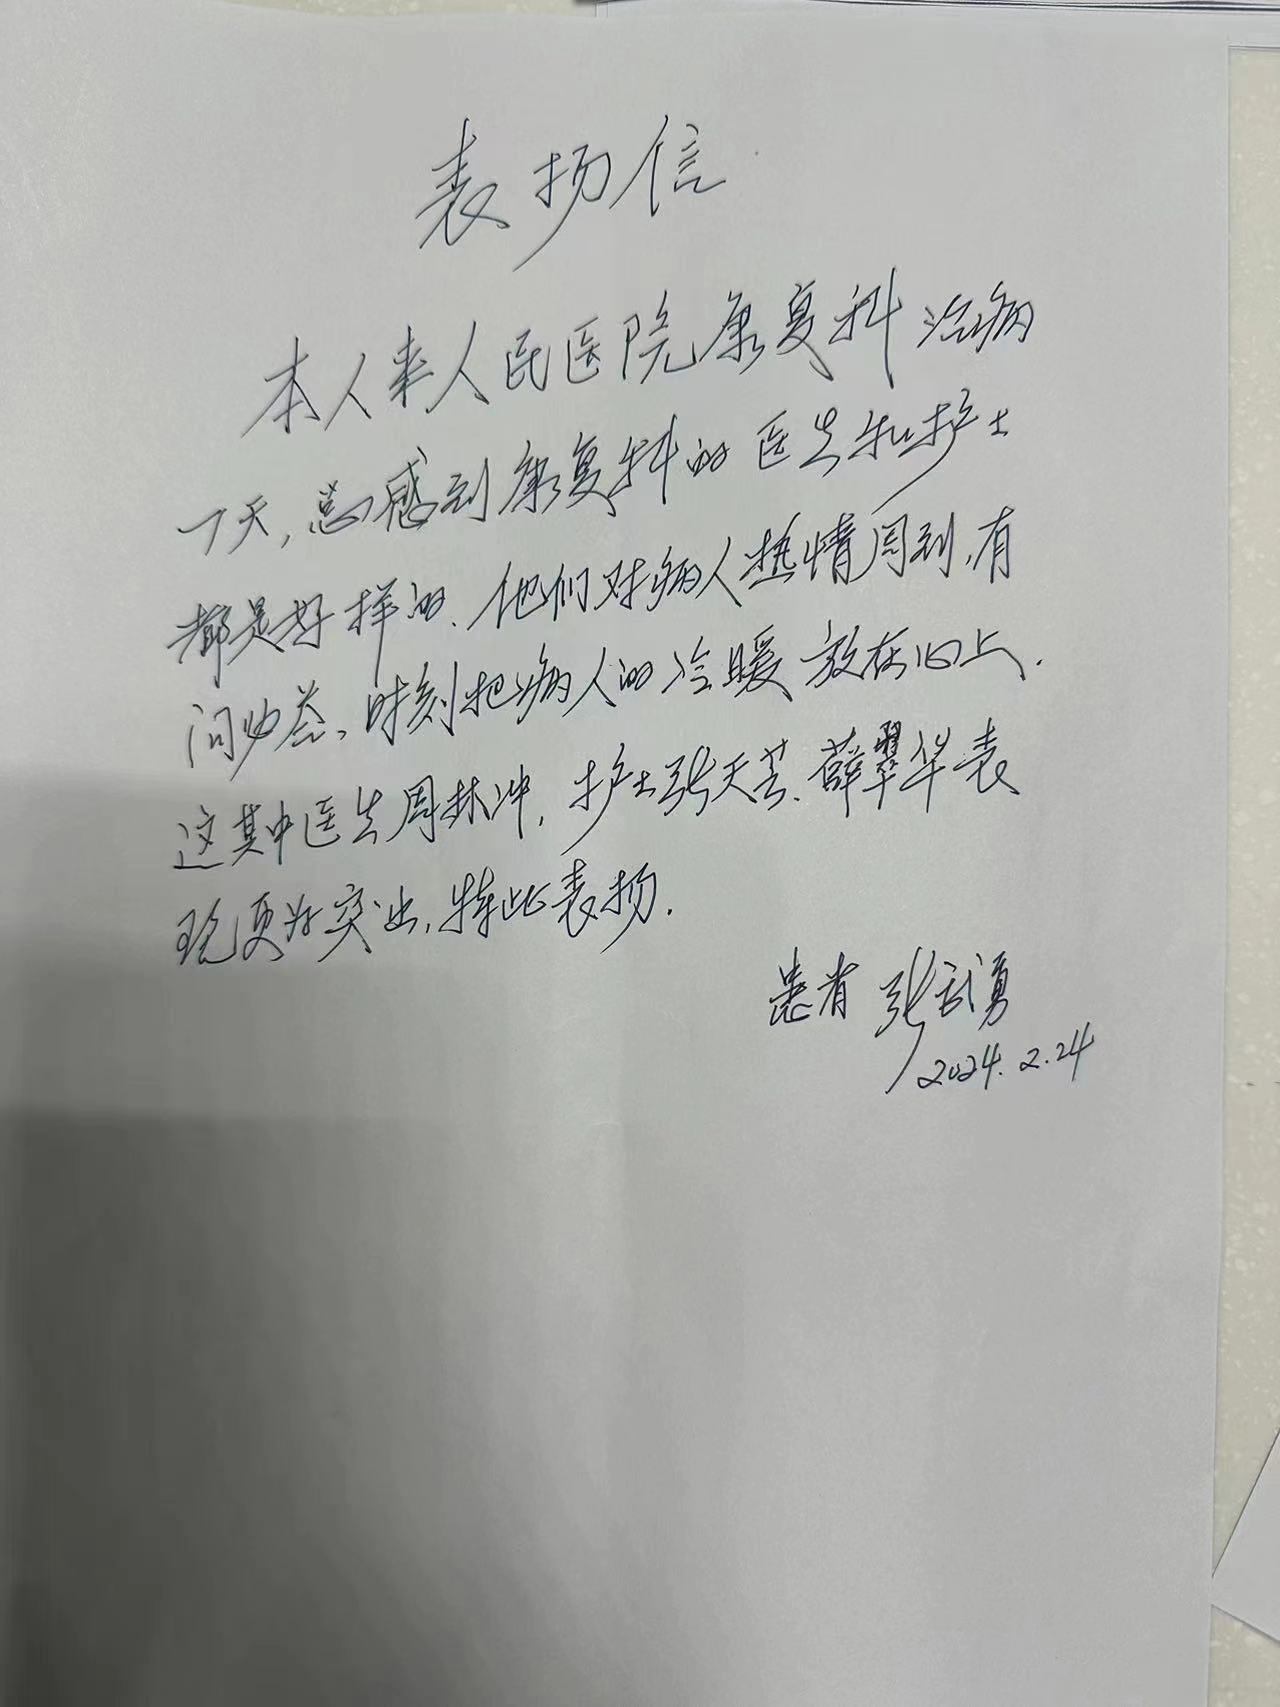 表扬信
本人来人民医院康复科治病
7天,总感到康复科的医生和护士
都是好样的.他们对病人热情周到,有
问必答,时刻把病人的冷暖放在心上.
这其中医生周林冲,护士张天芸、薛翠华表
现更为突出,特此表扬.
患者 张武勇
2024.2.24